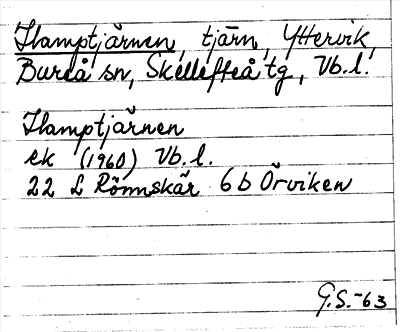 Hamptjärnen, tjärn, Yttervik,
Bureå sn, Skellefteå tg, Vb.l.
Hamptjärnen
ek (1960) Vb.l.
22 L Rönnskär 6b Örviken
G.S.-63